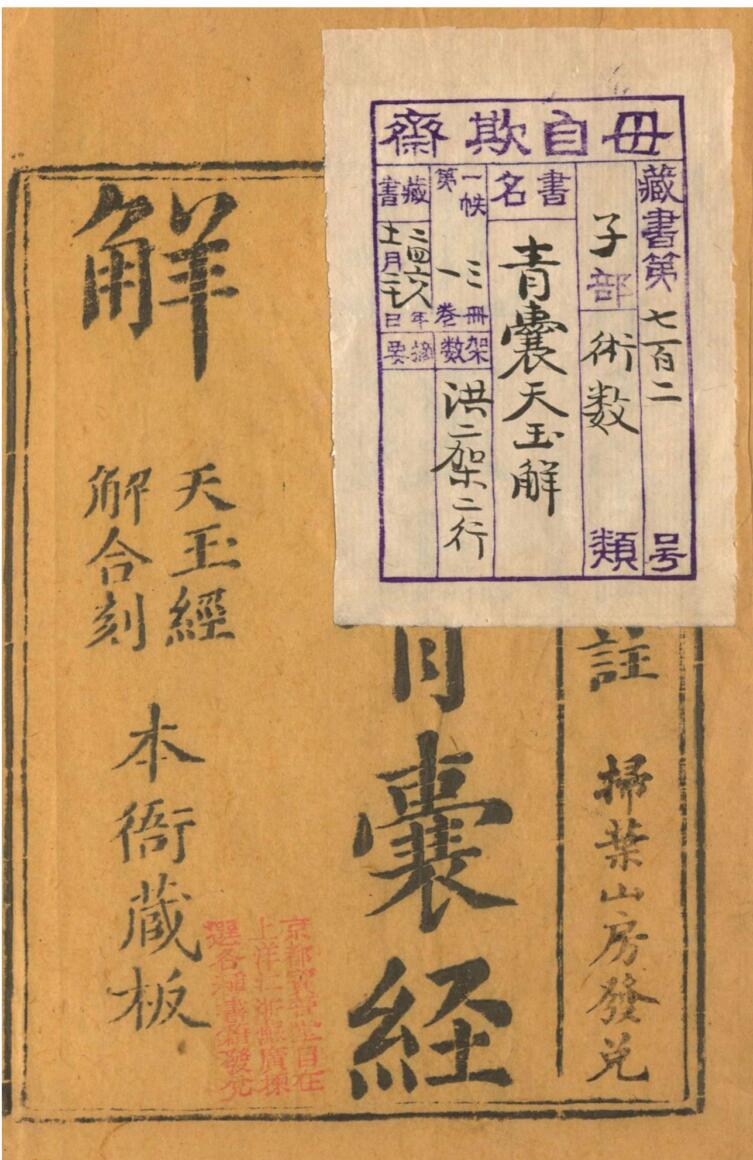 毋自欺齋
藏書第七百二号
子部術数類
書名
青囊天玉解
一帙
第
三冊
一卷
架数
洪二架二行
藏書
年
月
日
摘要
註
掃葉山房發兑
囊経
解
天玉經
解合刻
本衙蔵板
京都寶善堂自在
上洋江浙蘇廣揀
選各種書籍發兌